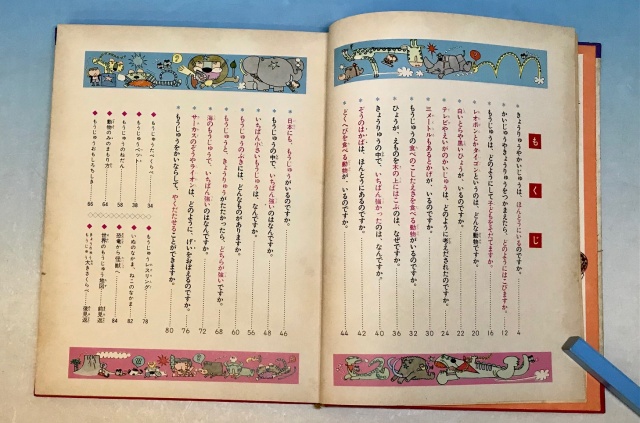 もくじ
きょうりゅうやかいじゅうは、ほんとうにいるのですか。 4
かいじゅうやきょうりゅうをつかまえたら、どのようにはこびますか。 12
もうじゅうは、どのようにして子どもをそだてますか。 16
レオポンとかタイゴンというのは、どんな動物ですか。 20
白いとらや黒いひょうが、いるのですか。 22
テレビやえいがのかいじゅうは、どのように考えだされたのですか。 24
三メートルもあるとかげが、いるのですか。 30
もうじゅうの食べのこしたえさを食べる動物がいるのですか。 32
ひょうが、えものを木の上にはこぶのは、なぜですか。 36
ぞうのはかばは、ほんとうにあるのですか。 40
きょうりゅうの中で、いちばん強かったのは、なんですか。 42
どくへびを食べる動物が、いるのですか。 44
日本にも、もうじゅうがいるのですか。 46
もうじゅうの中で、いちばん強いのはなんですか。 48
いちばん小さいもうじゅうは、なんですか。 56
もうじゅうのぶきには、どんなものがありますか。 60
もうじゅうときょうりゅうがたたかったら、どちらが強いですか。 68
海のもうじゅうで、いちばん強いのはなんですか。 72
サーカスのぞうやライオンは、どのように、げいをおぼえるのですか。 76
もうじゅうをかいならして、やくだたせることができますか。 80
もうじゅうたべくらべ 34
もうじゅうペット 38
もうじゅうのねだん 58
動物のみのまもり方 64
もうじゅうおもしろちしき 66
もうじゅうレスリング 78
いぬのなかま、ねこのなかま 82
恐竜から怪獣へ 84
世界のもうじゅう地図 前見返
もうじゅう大きさくらべ 後見返